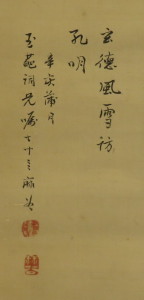 玄德風雪訪
孔明
辛亥蒲月
玉苑詞兄囑 七十三